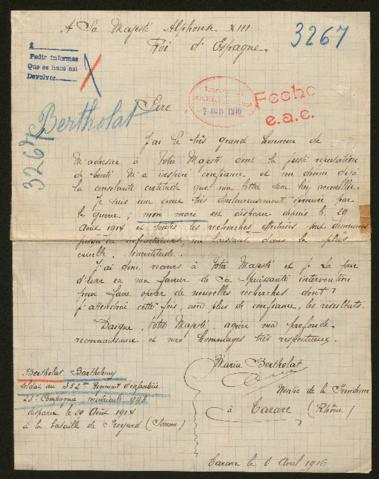 A Sa Majesté Alphonse XIII
Roi d'Espagne
3267
Pedir informes
Que se hace así
Devolver
Fecho
e.a.c.
Bertholat
3267
Sire,
J'ai le très grand honneur de
m'adresser à Votre Majesté dont la juste réputation
de bonté m'a inspiré confiance, et me donne déjà
la consolante certitude que ma lettre sera bien accueillie.
Je suis une mère très douloureusement éprouvée par
la guerre; mon mari est disparu depuis le 29
Août 1914 et toutes les recherches
jusqu'ici infructueuses, me laissant dans la plus
cruelle incertitude.
J'ai donc recours à Votre Majesté et je la
d'user en ma faveur de Sa Puissante intervention
pour faire opérer de nouvelles recherches dont
j'attendrai cette fois, avec plus de confiance, les résultats.
Daigne, Votre Majesté, agréer ma profonde
reconnaissance et mes hommages très respectueux.
Maria Bertholat
à Tarare (Rhône)
Bertholat Barthélemy
soldat au 352e Régiment d'infanterie
Compagnie matricule
disparu le 29 Août 1914
à la bataille de Proyard (Somme)
Tarare le 6 Avril 1916